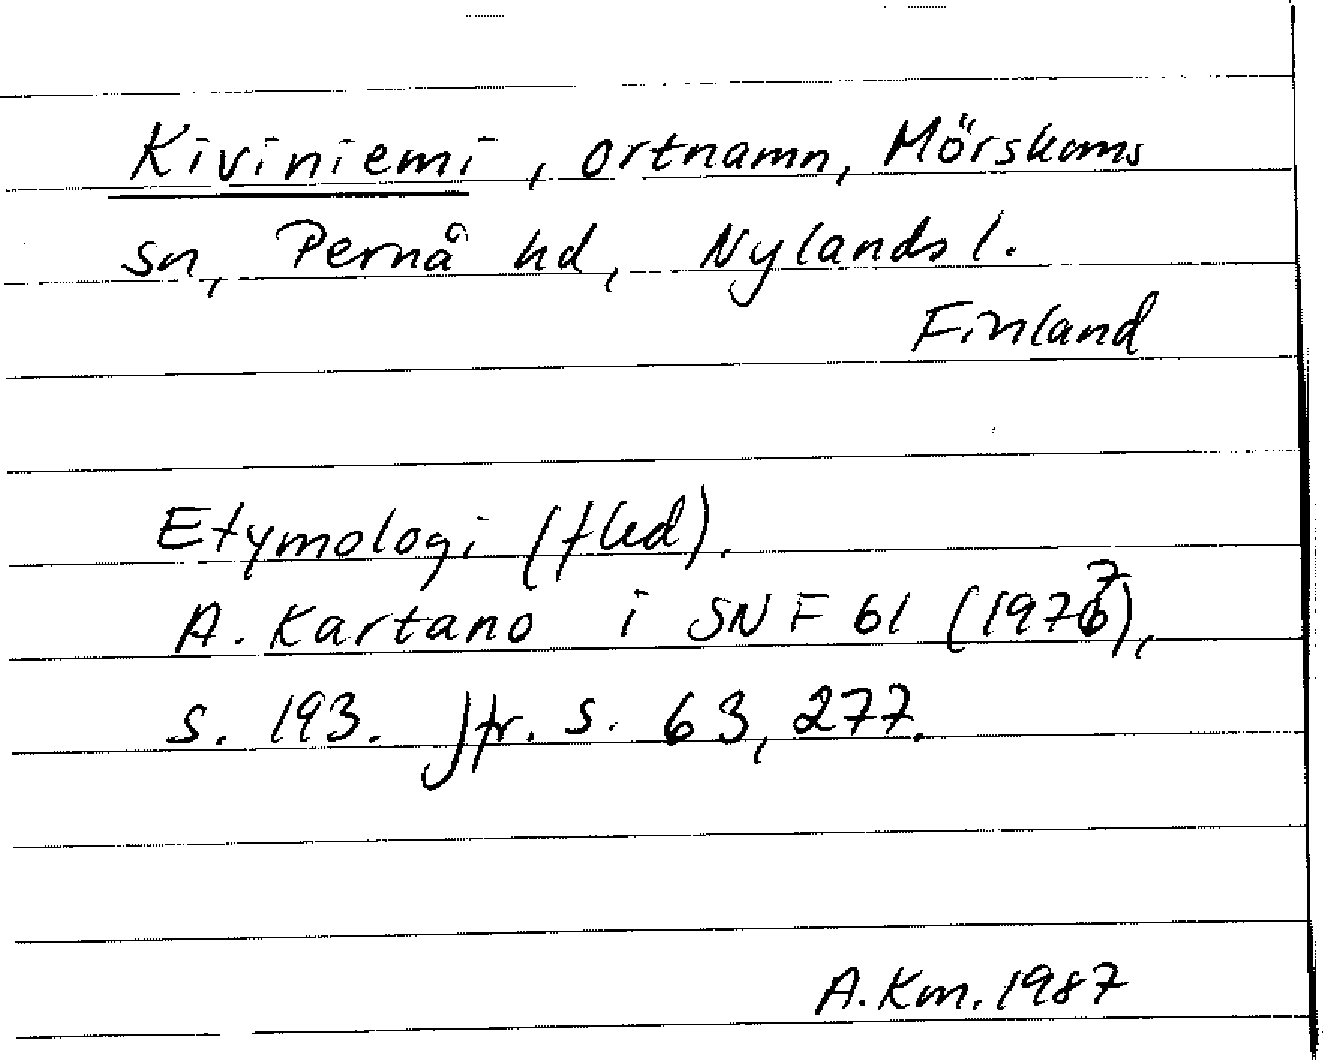 Kiviniemi, ortnamn, Mörskoms
sn, Pernå hd, Nylands l.
Finland
Etymologi (fled).
A. Kartano i SNF 61 (1977),
s. 193. Jfr. s. 63, 277.
A. Km. 1987